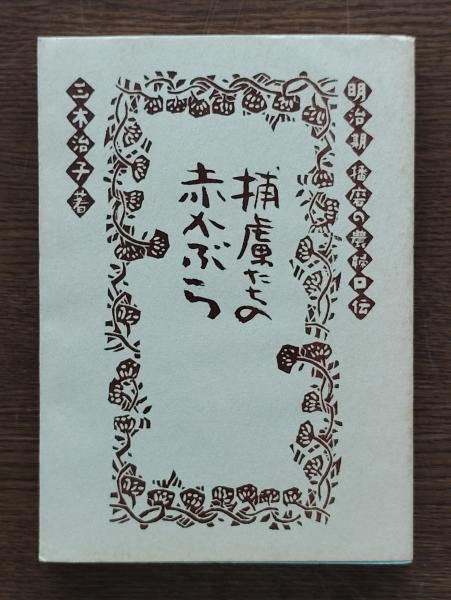 明治期 播磨の農婦口伝
捕虜たちの
赤かぶら
三木治子著